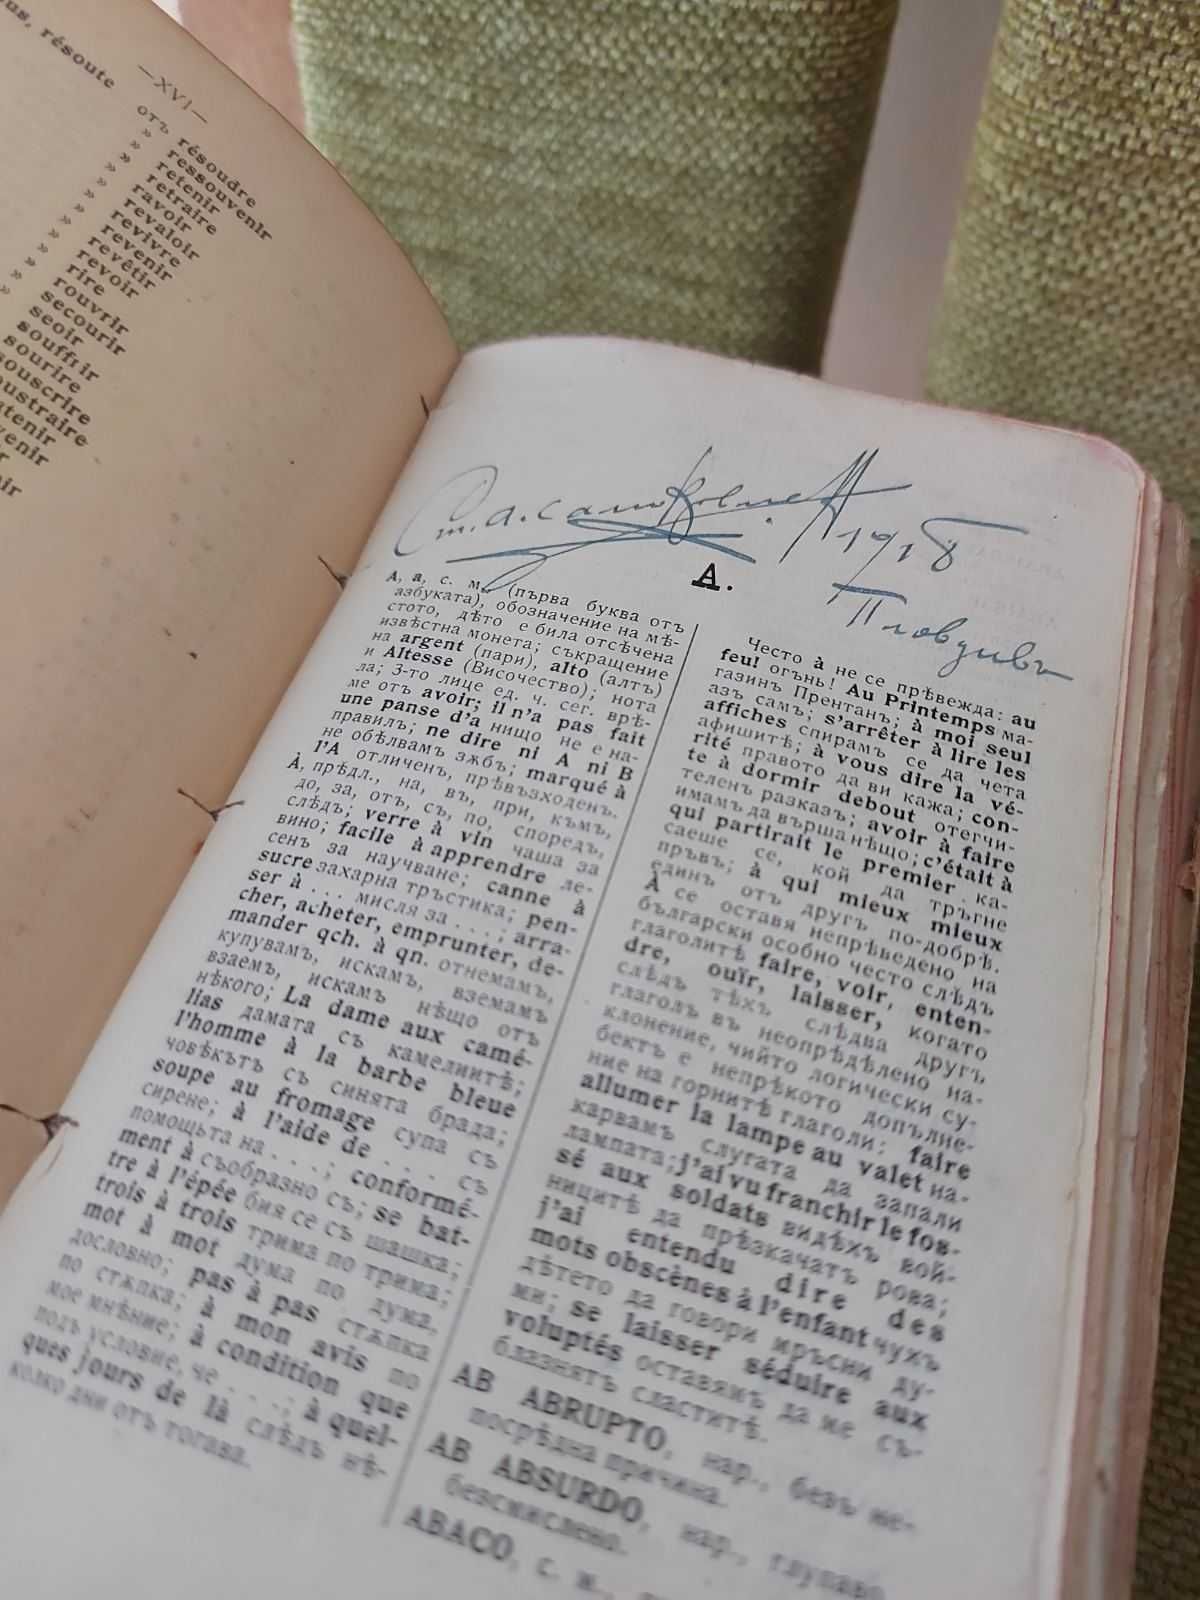 résoute
—XVI—
отъ résoudre
» ressouvenir
» retenir
» retraire
» ravoir
» revaloir
» revivre
» revenir
» revêtir
» revoir
» rire
rouvrir
secourir
seoir
souffrir
sourire
1918
Пловдивъ
A.
A, a, с. м., (първа буква отъ
азбуката), обозначение на мѣ-
стото, дѣто е била отсѣчена
извѣстна монета; съкращение
на argent (пари), alto (алтъ)
и Altesse (Височество); нота
ла; 3-то лице ед. ч. сег. врѣ-
ме отъ avoir; il n'a pas fait
une panse d'a нищо не е на-
правилъ; ne dire ni A ni B
не обѣлвамъ зѫбъ; marqué à
l'A отличенъ, прѣвъзходенъ.
À, прѣдл., на, въ, при, къмъ,
до, за, отъ, съ, по, споредъ,
слѣдъ; verre à vin чаша за
вино; facile à apprendre ле-
сенъ за научване; canne à
sucre захарна тръстика; pen-
ser à . . . мисля за . . .; arra-
cher, acheter, emprunter, de-
mander qch. à qn. отнемамъ,
купувамъ, искамъ, вземамъ
взаемъ, искамъ нѣщо отъ
нѣкого; La dame aux camé-
lias дамата съ камелиитѣ;
l'homme à la barbe bleue
човѣкътъ съ синята брада;
soupe au fromage супа съ
сирене; à l'aide de . . . съ
помощьта на . . .; conformé-
ment à съобразно съ; se bat-
tre à l'épée бия се съ шашка;
trois à trois трима по трима;
mot à mot дума по дума,
дословно; pas à pas стѫпка
по стѫпка; à mon avis по
мое мнѣние; à condition que
подъ условие, че . . .; à quel-
ques jours de là слѣдъ нѣ-
колко дни отъ тогава.
Често à не се прѣвежда: au
feu! огънь! Au Printemps ма-
газинъ Прентанъ; à moi seul
азъ самъ; s'arrêter à lire les
affiches спирамъ се да чета
афишитѣ; à vous dire la vé-
rité правото да ви кажа; con-
te à dormir debout отегчи-
теленъ разказъ; avoir à faire
имамъ да върша нѣщо; c'était à
qui partirait le premier ка-
саеше се, кой да тръгне
пръвъ; à qui mieux mieux
единъ отъ другъ по-добрѣ.
À се оставя непрѣведено на
български особно често слѣдъ
глаголитѣ faire, voir, enten-
dre, ouïr, laisser, когато
слѣдъ тѣхъ слѣдва другъ
глаголъ въ неопрѣдѣлено на-
клонение, чийто логически су-
бектъ е непрѣкото допълне-
ние на горнитѣ глаголи: faire
allumer la lampe au valet на-
карвамъ слугата да запали
лампата; j'ai vu franchir le fos-
sé aux soldats видѣхъ вой-
ницитѣ да прѣскачатъ рова;
j'ai entendu dire des
mots obscènes à l'enfant чухъ
дѣтето да говори мръсни ду-
ми; se laisser séduire aux
voluptés оставямъ да ме съ-
блазнятъ сласгитѣ.
AB ABRUPTO, нар., безъ не-
посрѣдна причина.
AB ABSURDO, нар., глупаво
безсмислено.
ABACO, с. м.,